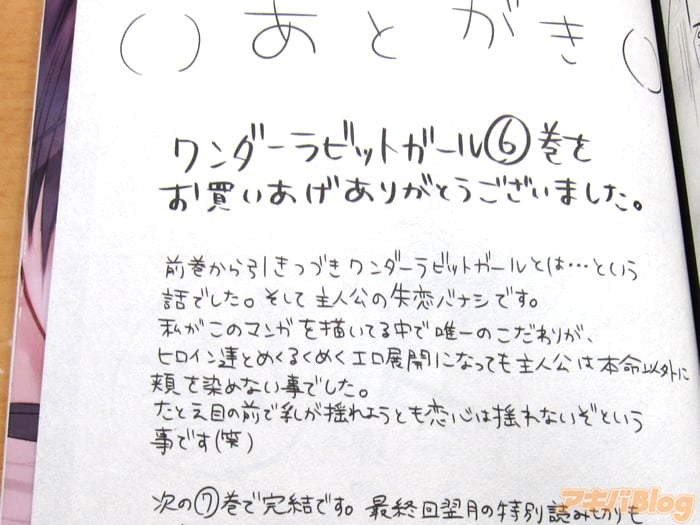 ( )あとがき( )
ワンダーラビットガール⑥巻を
お買いあげありがとうございました。
前巻から引きつづきワンダーラビットガールとは…という
話でした。そして主人公の失恋バナシです。
私がこのマンガを描いてる中で唯一のこだわりが、
ヒロイン達とめくるくめくエロ展開になっても主人公は本命以外に
頬を染めない事でした。
たとえ目の前で乳が揺れようとも恋心は揺れないぞという
事です(笑)
次の⑦巻で完結です。最終回翌月の特別読み切りも
アキバBlog